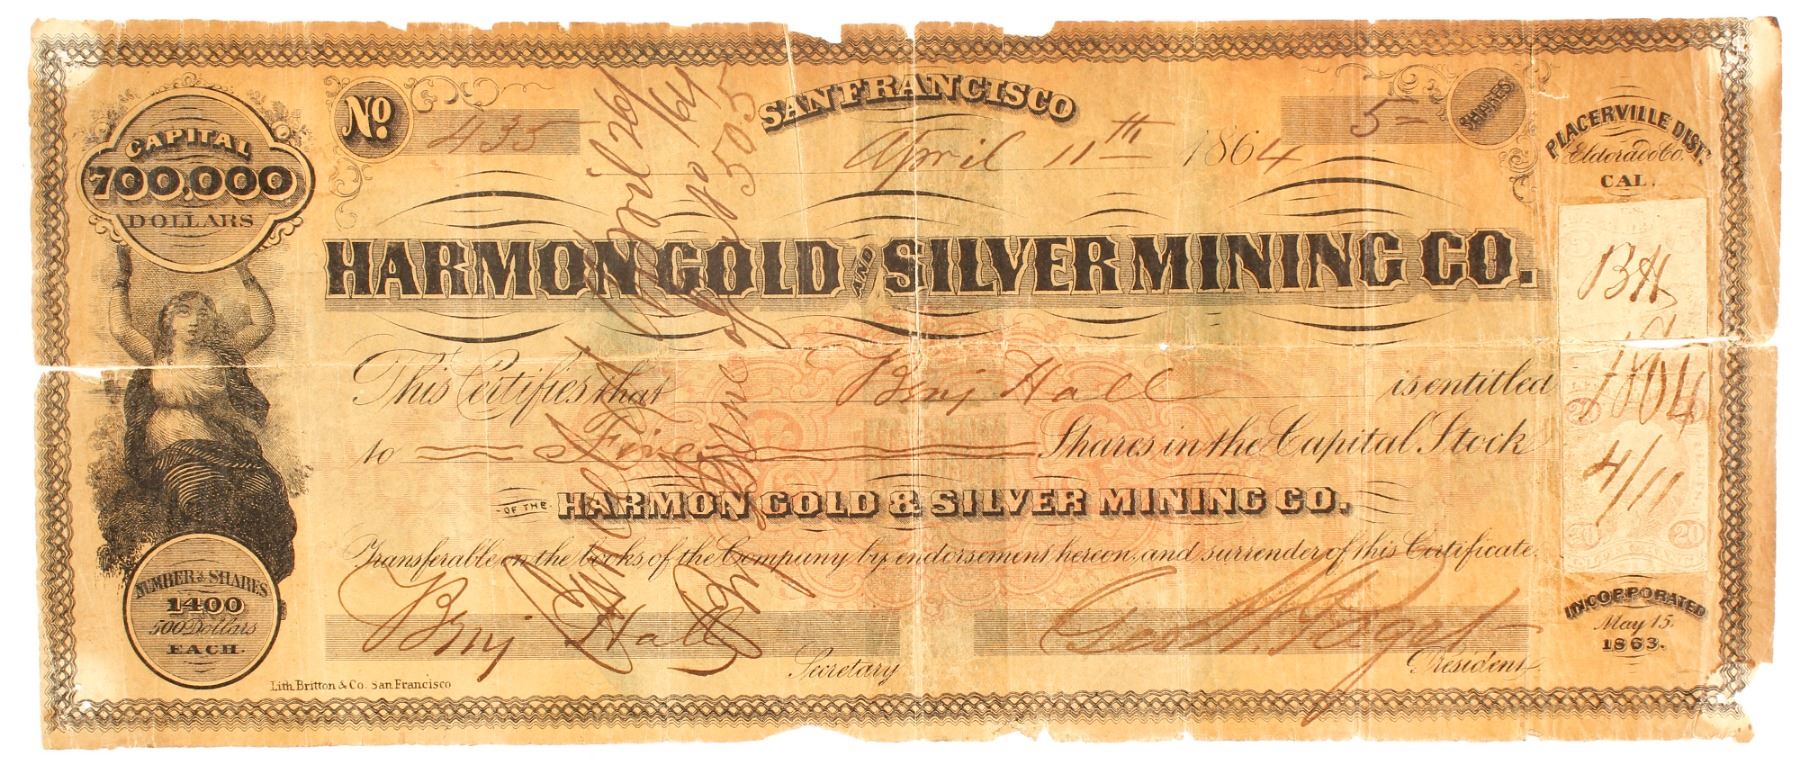 CAPITAL
700,000
DOLLARS
No.
435
SAN FRANCISCO
April 11th 1864
5=
SHARES
PLACERVILLE DIST.
Eldorado Co.
CAL.
HARMON GOLD AND SILVER MINING CO.
This Certifies that Benj Hall is entitled
to Five Shares in the Capital Stock
OF THE HARMON GOLD & SILVER MINING CO.
Transferable on the books of the Company by endorsement hereon, and surrender of this Certificate.
Benj Hall
Secretary
President
NUMBER of SHARES
1400
500 Dollars
EACH.
Lith. Britton & Co. San Francisco
BH
1864
4/11
20
20
INCORPORATED
May 15.
1863.
April 26/64
505